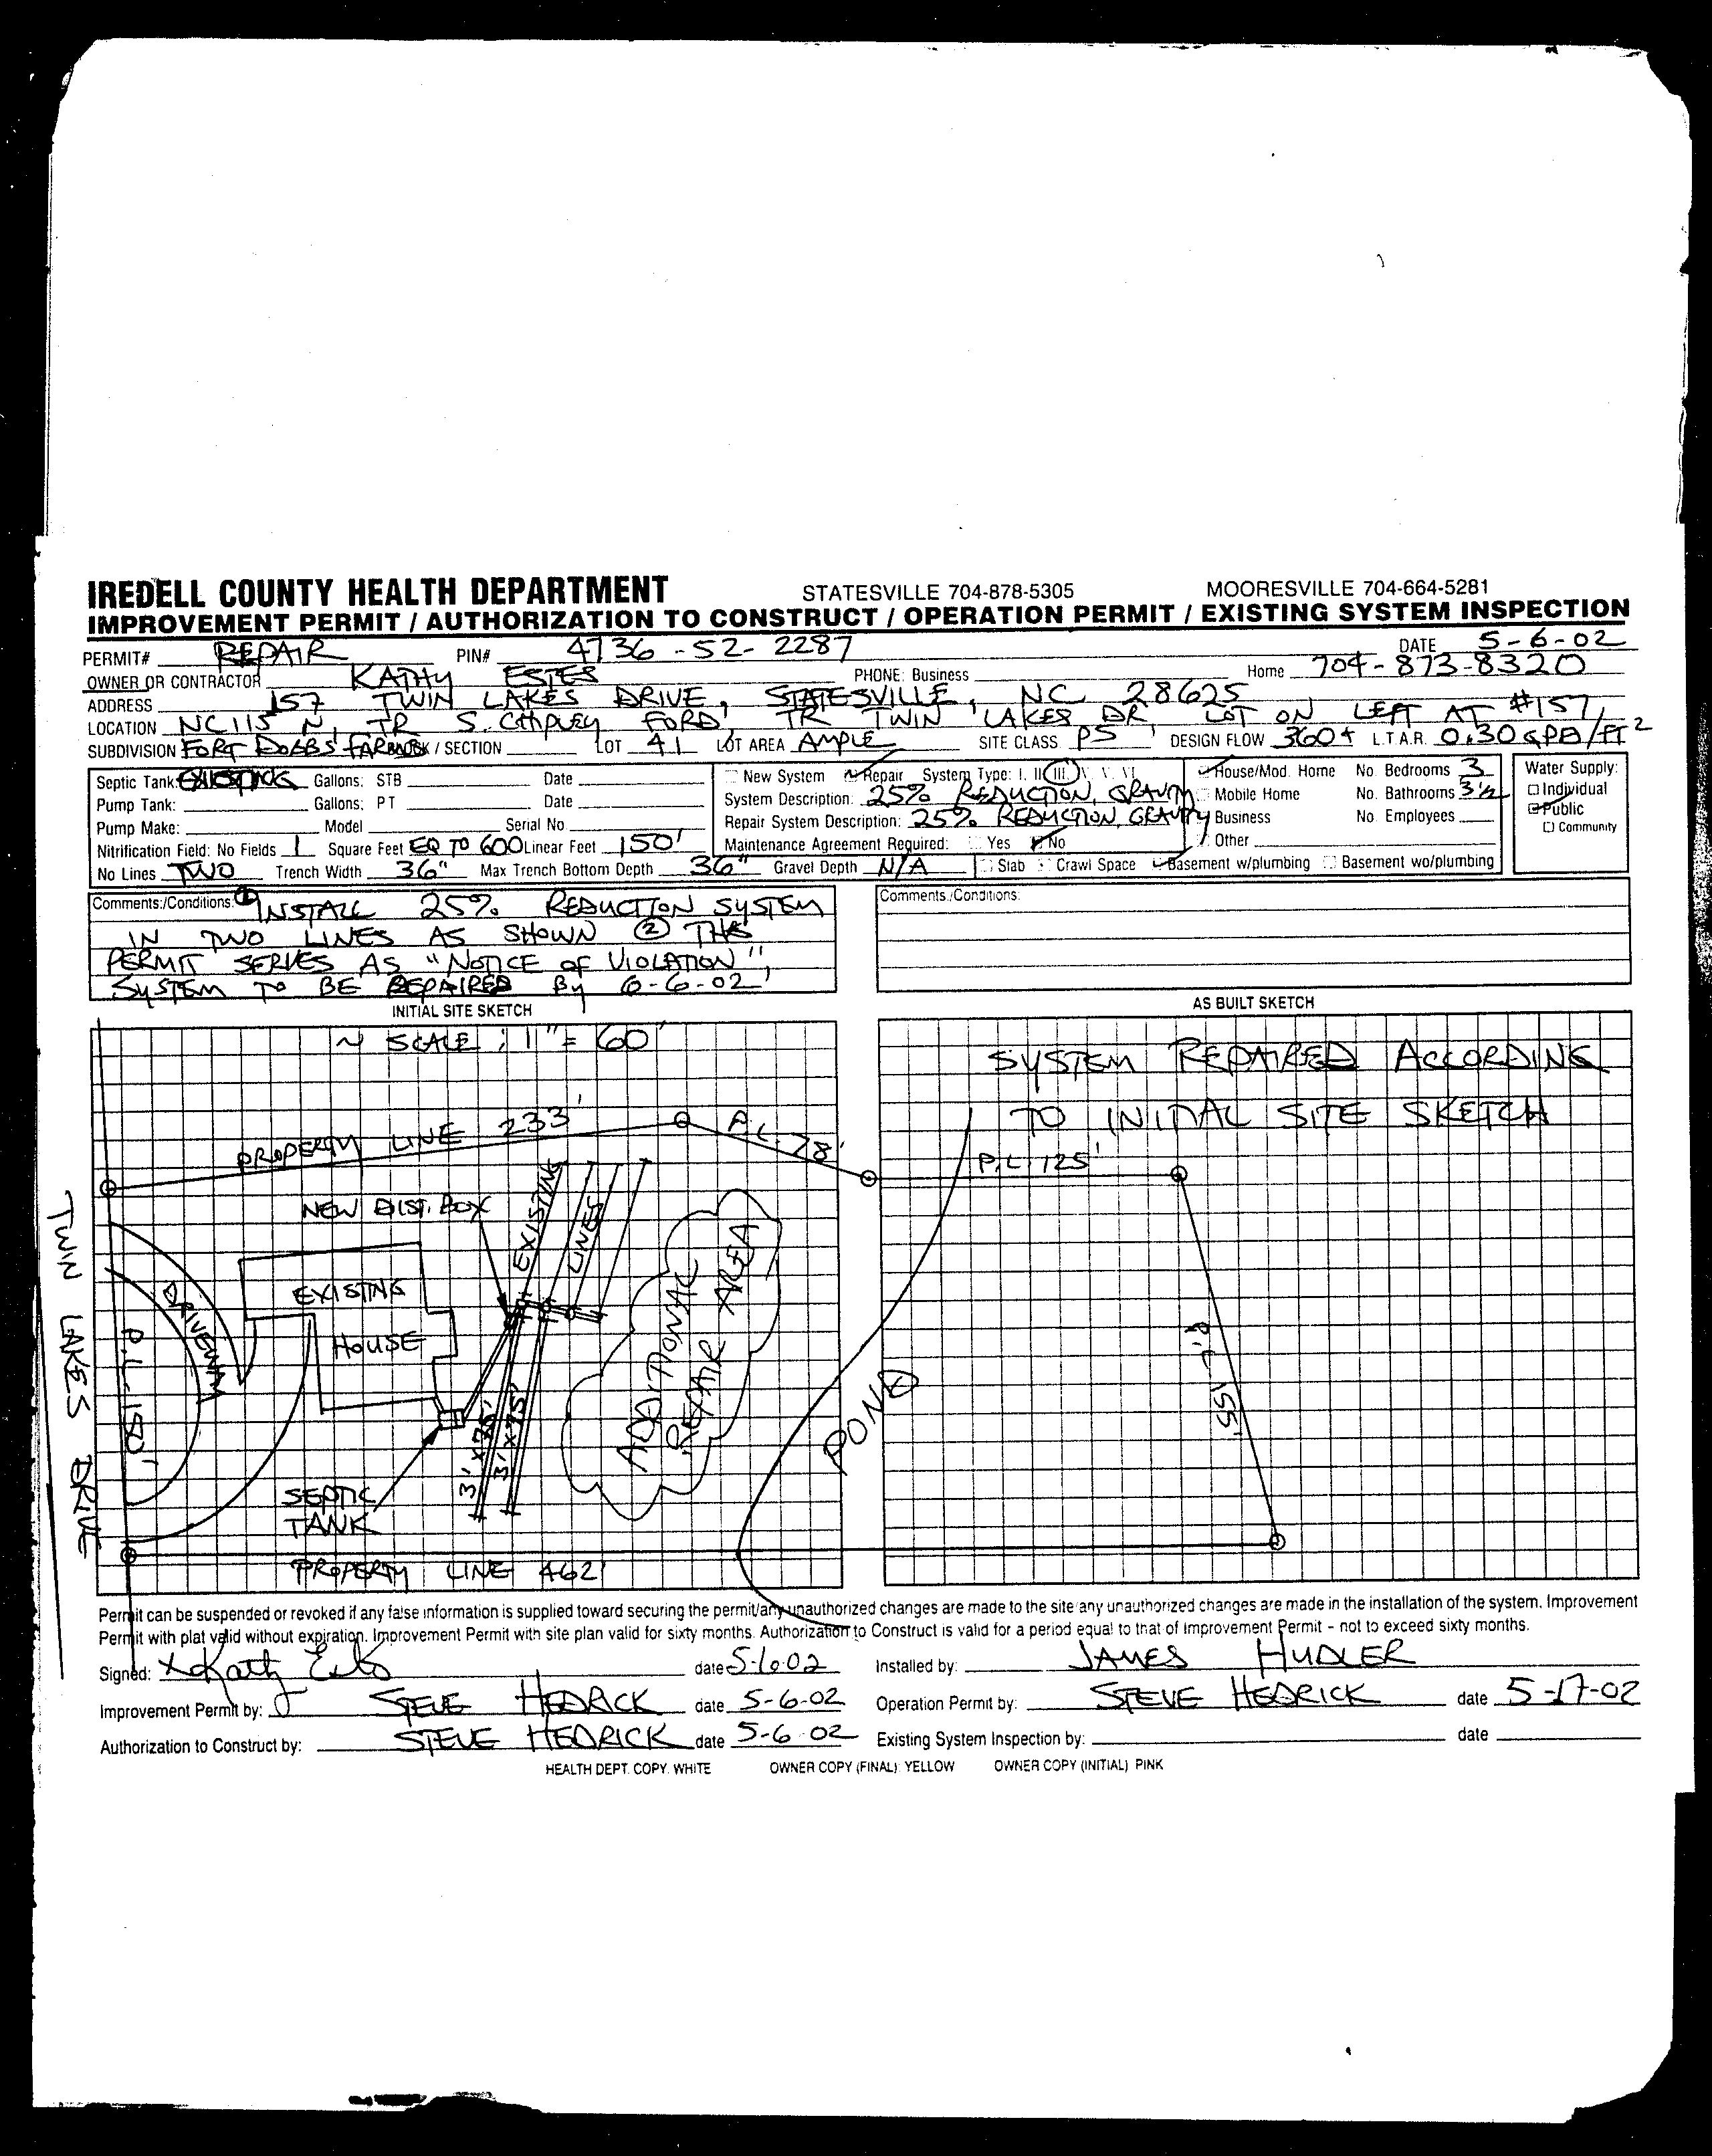 IREDELL COUNTY HEALTH DEPARTMENT STATESVILLE 704-878-5305 MOORESVILLE 704-664-5281
IMPROVEMENT PERMIT / AUTHORIZATION TO CONSTRUCT / OPERATION PERMIT / EXISTING SYSTEM INSPECTION
PERMIT# REPAIR PIN# 4736-52-2287 DATE 5-6-02
OWNER OR CONTRACTOR KATHY ESTES PHONE: Business Home 704-873-8320
ADDRESS 157 TWIN LAKES DRIVE, STATESVILLE, NC 28625
LOCATION NC 115 N, TR S. CHIPLEY FORD TR TWIN LAKES DR, LOT ON LEFT AT #157
SUBDIVISION FORT DOBBS / SECTION LOT 41 LOT AREA AMPLE SITE CLASS PS DESIGN FLOW 360+ L.T.A.R. 0.30 GPD/FT2
Septic Tank: EXISTING Gallons: STB Date
Pump Tank: Gallons: PT Date
Pump Make: Model Serial No
Nitrification Field: No Fields 1 Square Feet EQ TO 600 Linear Feet 150'
No Lines TWO Trench Width 36" Max Trench Bottom Depth 36" Gravel Depth N/A
New System Repair System Type: I. II III. V. V. VI
System Description: 25% REDUCTION, GRAVITY
Repair System Description: 25% REDUCTION, GRAVITY
Maintenance Agreement Required: Yes No
Slab Crawl Space Basement w/plumbing Basement wo/plumbing
House/Mod. Home No. Bedrooms 3
Mobile Home No. Bathrooms 3 1/2
Business No. Employees
Other
Water Supply:
Individual
Public
Community
Comments:/Conditions: ① INSTALL 25% REDUCTION SYSTEM
IN TWO LINES AS SHOWN ② THIS
PERMIT SERVES AS "NOTICE OF VIOLATION",
SYSTEM TO BE REPAIRED BY 6-6-02
Comments:/Conditions:
INITIAL SITE SKETCH
AS BUILT SKETCH
~ SCALE: 1" = 60'
SYSTEM REPAIRED ACCORDING
TO INITIAL SITE SKETCH
PROPERTY LINE 233'
P.L. 78'
P.L. 125'
NEW DIST. BOX
EXISTING
LINES
EXISTING
HOUSE
DRIVEWAY
P.L. 150'
TWIN LAKES DRIVE
ADDITIONAL
REPAIR AREA
POND
P.L. 155'
3' x 75'
3' x 75'
SEPTIC
TANK
PROPERTY LINE 462'
Permit can be suspended or revoked if any false information is supplied toward securing the permit/any unauthorized changes are made to the site/any unauthorized changes are made in the installation of the system. Improvement
Permit with plat valid without expiration. Improvement Permit with site plan valid for sixty months. Authorization to Construct is valid for a period equal to that of Improvement Permit - not to exceed sixty months.
Signed: x Kathy Estes date 5-6-02 Installed by: JAMES HUDLER
Improvement Permit by: STEVE HEDRICK date 5-6-02 Operation Permit by: STEVE HEDRICK date 5-17-02
Authorization to Construct by: STEVE HEDRICK date 5-6-02 Existing System Inspection by: date
HEALTH DEPT. COPY. WHITE OWNER COPY (FINAL): YELLOW OWNER COPY (INITIAL) PINK